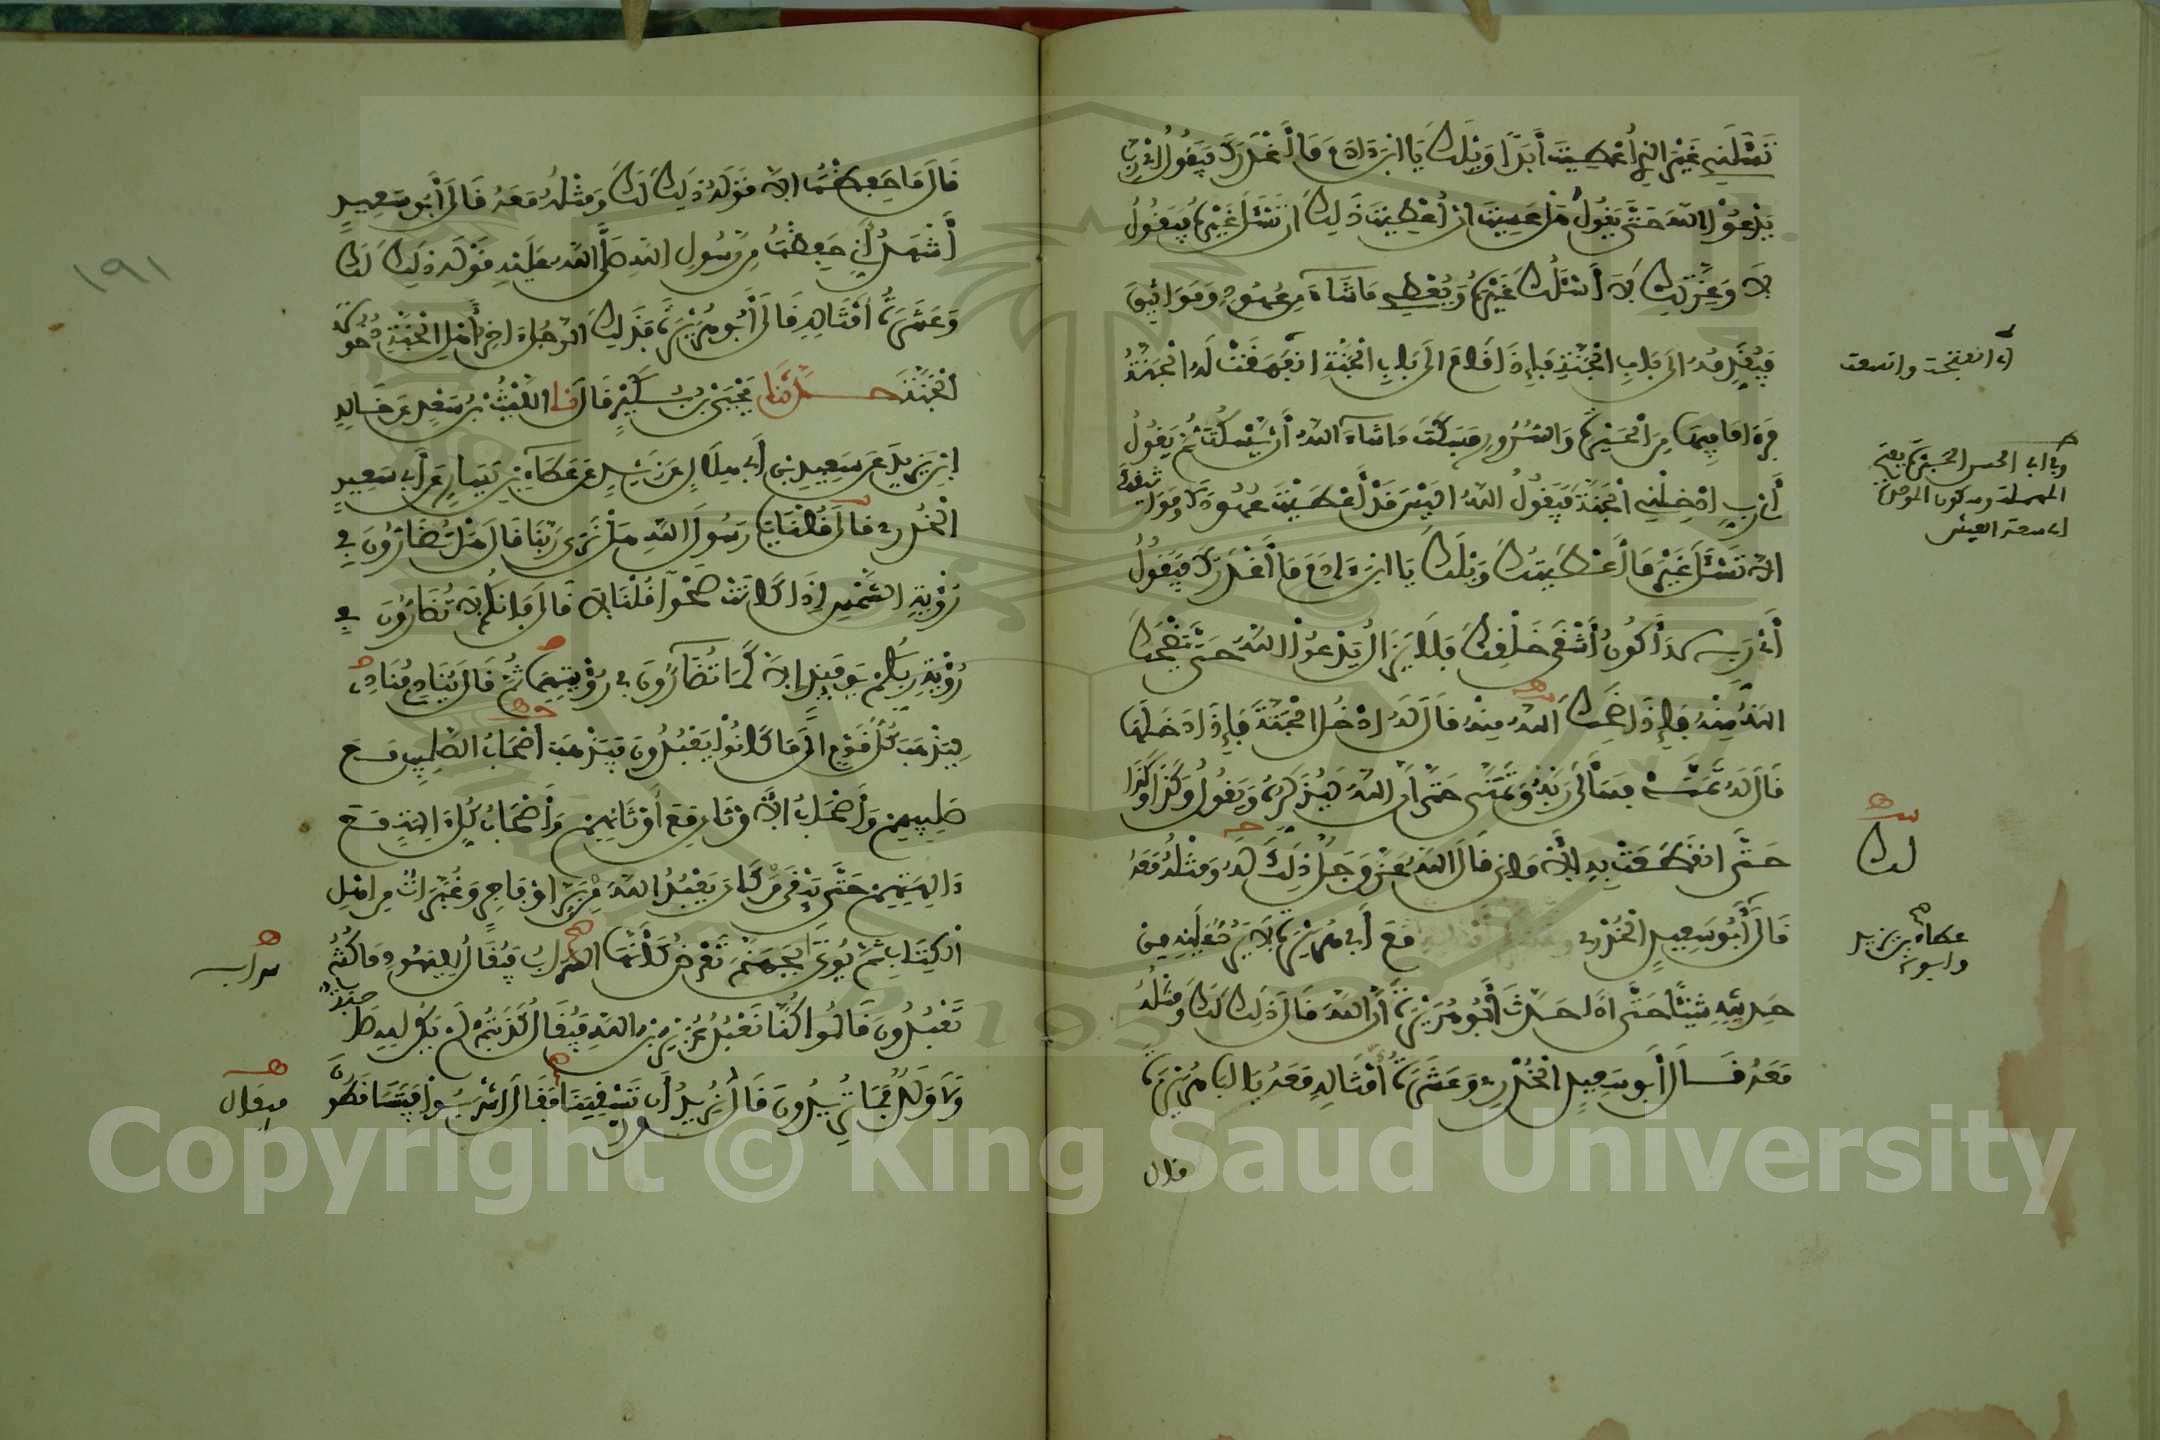 تَسْئَلَنِي غَيْرَ الذِي أُعْطِيتَ أَبَدًا وَيْلَكَ يَا ابْنَ ءَادَمَ مَا أَغْدَرَكَ فَيَقُولُ أَيْ رَبِّ
يَدْعُو اللَّهَ حَتَّى يَقُولَ هَلْ عَسِيتَ إِنْ أُعْطِيتَ ذَلِكَ أَنْ تَسْئَلَ غَيْرَهُ فَيَقُولُ
لَا وَعِزَّتِكَ لَا أَسْئَلُكَ غَيْرَهُ وَيُعْطِي مَا شَاءَ مِنْ عُهُودٍ وَمَوَاثِيقَ
فَيُقَدِّمُهُ إِلَى بَابِ الْجَنَّةِ فَإِذَا قَامَ إِلَى بَابِ الْجَنَّةِ انْفَهَقَتْ لَهُ الْجَنَّةُ
فَرَءَا مَا فِيهَا مِنَ الْحَبْرَةِ وَالسُّرُورِ فَيَسْكُتُ مَا شَاءَ اللَّهُ أَنْ يَسْكُتَ ثُمَّ يَقُولُ
أَيْ رَبِّ أَدْخِلْنِي الْجَنَّةَ فَيَقُولُ اللَّهُ أَلَيْسَ قَدْ أَعْطَيْتَ عُهُودَكَ وَمَوَاثِيقَكَ
أَلَّا تَسْئَلَ غَيْرَ مَا أَعْطَيْتُكَ وَيْلَكَ يَا ابْنَ ءَادَمَ مَا أَغْدَرَكَ فَيَقُولُ
أَيْ رَبِّ لَا أَكُونُ أَشْقَى خَلْقِكَ فَلَا يَزَالُ يَدْعُو اللَّهَ حَتَّى يَضْحَكَ
اللَّهُ مِنْهُ فَإِذَا ضَحِكَ اللَّهُ مِنْهُ قَالَ لَهُ ادْخُلِ الْجَنَّةَ فَإِذَا دَخَلَهَا
قَالَ لَهُ تَمَنَّهْ فَسَأَلَ رَبَّهُ وَتَمَنَّى حَتَّى أَنَّ اللَّهَ لَيُذَكِّرُهُ وَيَقُولُ وَكَذَا وَكَذَا
حَتَّى انْقَطَعَتْ بِهِ الْأَمَانِي قَالَ اللَّهُ عَزَّ وَجَلَّ ذَلِكَ لَهُ وَمِثْلُهُ مَعَهُ
قَالَ أَبُو سَعِيدٍ الْخُدْرِي مَعَ أَبِي هُرَيْرَةَ لَا يَرُدُّ عَلَيْهِ مِنْ
حَدِيثِهِ شَيْئًا حَتَّى إِذَا حَدَّثَ أَبُو هُرَيْرَةَ أَنَّ اللَّهَ قَالَ ذَلِكَ لَكَ وَمِثْلُهُ
مَعَهُ قَالَ أَبُو سَعِيدٍ الْخُدْرِي وَعَشَرَةُ أَمْثَالِهِ مَعَهُ يَا أَبَا هُرَيْرَةَ
قال
أي انفتحت واتسعت
الحبرة بفتح
المهملة وسكون الموحدة
أي سعة العيش
لك
عطاء بن يزيد
قَالَ مَا حَفِظْتُ إِلَّا قَوْلَهُ ذَلِكَ لَكَ وَمِثْلُهُ مَعَهُ قَالَ أَبُو سَعِيدٍ
أَشْهَدُ أَنِّي حَفِظْتُ مِنْ رَسُولِ اللَّهِ صَلَّى اللَّهُ عَلَيْهِ قَوْلَهُ ذَلِكَ لَكَ
وَعَشَرَةُ أَمْثَالِهِ قَالَ أَبُو هُرَيْرَةَ فَذَلِكَ الرَّجُلُ ءَاخِرُ أَهْلِ الْجَنَّةِ دُخُولًا
الْجَنَّةَ حَدَّثَنَا يَحْيَى بْنُ بُكَيْرٍ قَالَ نَا اللَّيْثُ بْنُ سَعْدٍ عَنْ خَالِدِ
ابْنِ يَزِيدَ عَنْ سَعِيدِ بْنِ أَبِي هِلَالٍ عَنْ زَيْدٍ عَنْ عَطَاءِ بْنِ يَسَارٍ عَنْ أَبِي سَعِيدٍ
الْخُدْرِي قَالَ قُلْنَا يَا رَسُولَ اللَّهِ هَلْ نَرَى رَبَّنَا قَالَ هَلْ تُضَارُّونَ فِي
رُؤْيَةِ الشَّمْسِ إِذَا كَانَتْ صَحْوًا قُلْنَا لَا قَالَ فَإِنَّكُمْ لَا تُضَارُّونَ فِي
رُؤْيَةِ رَبِّكُمْ يَوْمَئِذٍ إِلَّا كَمَا تُضَارُّونَ فِي رُؤْيَتِهِمَا ثُمَّ قَالَ يُنَادِي مُنَادٍ
لِيَذْهَبْ كُلُّ قَوْمٍ إِلَى مَا كَانُوا يَعْبُدُونَ فَيَذْهَبُ أَصْحَابُ الصَّلِيبِ مَعَ
صَلِيبِهِمْ وَأَصْحَابُ الْأَوْثَانِ مَعَ أَوْثَانِهِمْ وَأَصْحَابُ كُلِّ ءَالِهَةٍ مَعَ
ءَالِهَتِهِمْ حَتَّى يَبْقَى مَنْ كَانَ يَعْبُدُ اللَّهَ مِنْ بَرٍّ أَوْ فَاجِرٍ وَغُبَّرَاتٌ مِنْ أَهْلِ
الْكِتَابِ ثُمَّ يُؤْتَى بِجَهَنَّمَ تُعْرَضُ كَأَنَّهَا السَّرَابُ فَيُقَالُ لِلْيَهُودِ مَا كُنْتُمْ
تَعْبُدُونَ قَالُوا كُنَّا نَعْبُدُ عُزَيْرَ بْنَ اللَّهِ فَيُقَالُ كَذَبْتُمْ لَمْ يَكُنْ لِلَّهِ صَاحِبَةٌ
وَلَا وَلَدٌ فَمَا تُرِيدُونَ قَالُوا نُرِيدُ أَنْ تَسْقِيَنَا فَقَالَ اشْرَبُوا فَيَتَسَاقَطُونَ
سراب
فيقال
١٩١
Copyright © King Saud University
1957